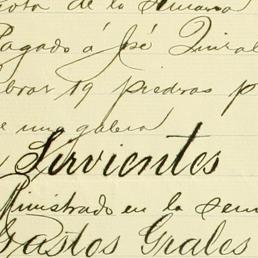 ota de la semana
Pagado á José Quiral
labrar 19 piedras p
e una galera
Sirvientes
ministrado en la sem
Gastos Grales